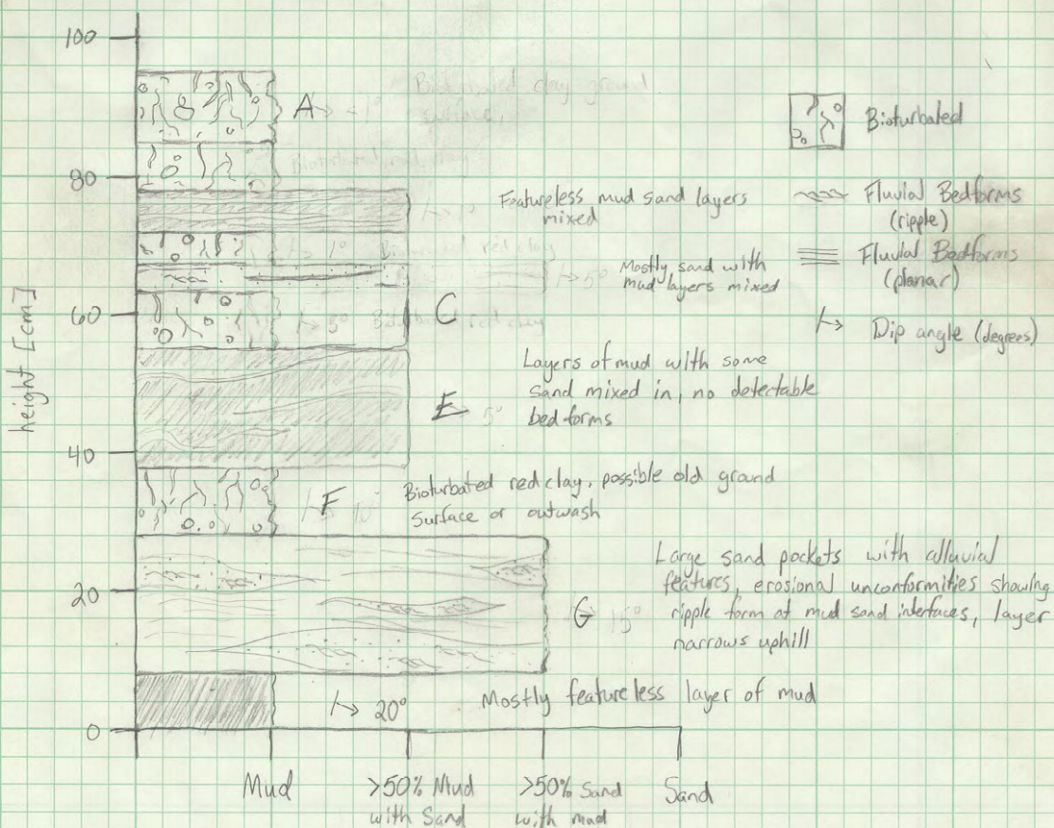 100
80
60
40
20
0
height [cm]
Bioturbated clay ground
surface,
A <1°
Bioturbated
Featureless mud sand layers
mixed
1° red clay
Mostly sand with
mud layers mixed
5°
C
Bioturbated red clay
Layers of mud with some
sand mixed in, no detectable
bedforms
E 5°
F
Bioturbated red clay, possible old ground
surface or outwash
G 15°
Large sand pockets with alluvial
features, erosional unconformities showing
ripple form at mud sand interfaces, layer
narrows uphill
20°
Mostly featureless layer of mud
Mud
>50% Mud
with Sand
>50% Sand
with mud
Sand
Bioturbated
Fluvial Bedforms
(ripple)
Fluvial Bedforms
(planar)
Dip angle (degrees)